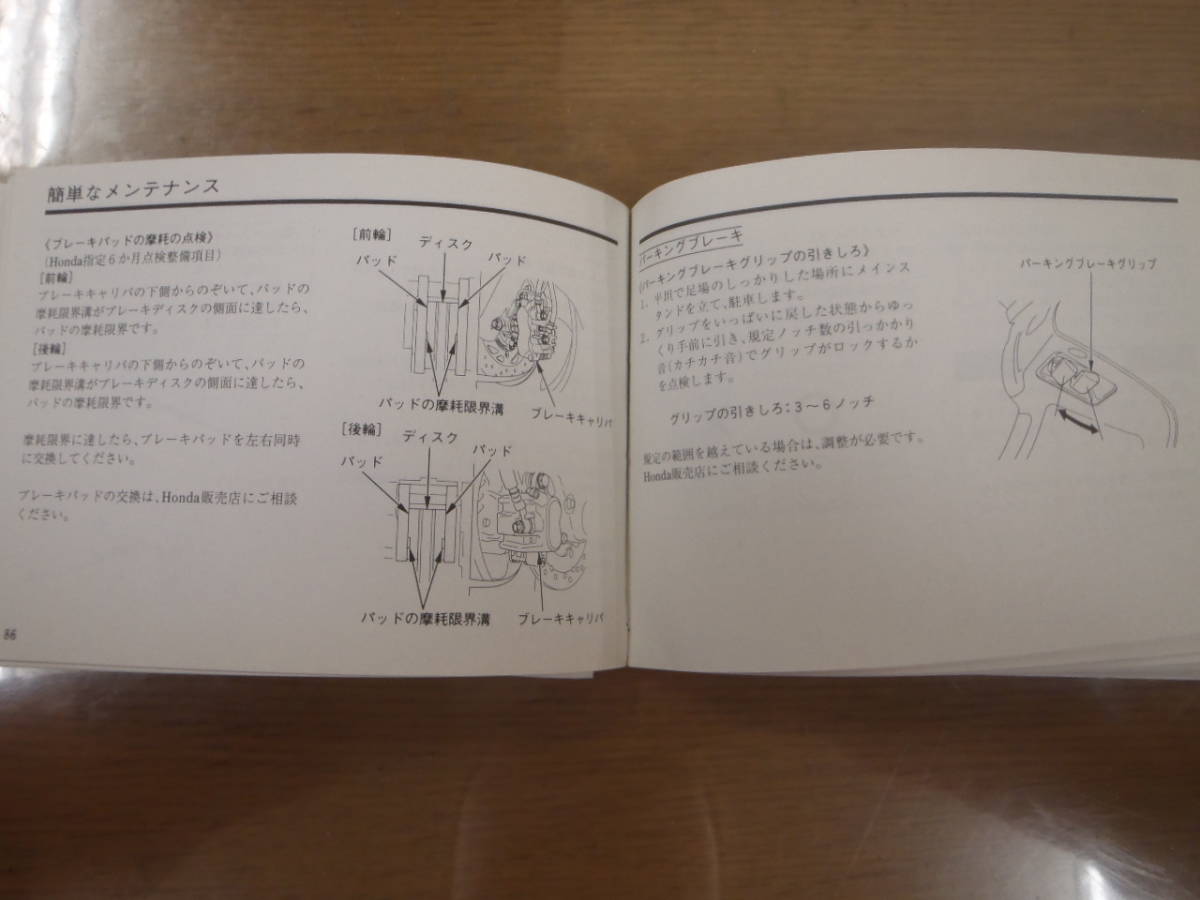 簡単なメンテナンス
《ブレーキパッドの摩耗の点検》
(Honda指定6か月点検整備項目)
[前輪]
ブレーキキャリパの下側からのぞいて、パッドの
摩耗限界溝がブレーキディスクの側面に達したら、
パッドの摩耗限界です。
[後輪]
ブレーキキャリパの下側からのぞいて、パッドの
摩耗限界溝がブレーキディスクの側面に達したら、
パッドの摩耗限界です。
摩耗限界に達したら、ブレーキパッドを左右同時
に交換してください。
ブレーキパッドの交換は、Honda販売店にご相談
ください。
[前輪]
ディスク
パッド
パッド
パッドの摩耗限界溝
ブレーキキャリパ
[後輪]
ディスク
パッド
パッド
パッドの摩耗限界溝
ブレーキキャリパ
86
パーキングブレーキ
《パーキングブレーキグリップの引きしろ》
1. 平坦で足場のしっかりした場所にメインス
タンドを立て、駐車します。
2. グリップをいっぱいに戻した状態からゆっ
くり手前に引き、規定ノッチ数の引っかかり
音(カチカチ音)でグリップがロックするか
を点検します。
グリップの引きしろ：3～6ノッチ
規定の範囲を越えている場合は、調整が必要です。
Honda販売店にご相談ください。
パーキングブレーキグリップ